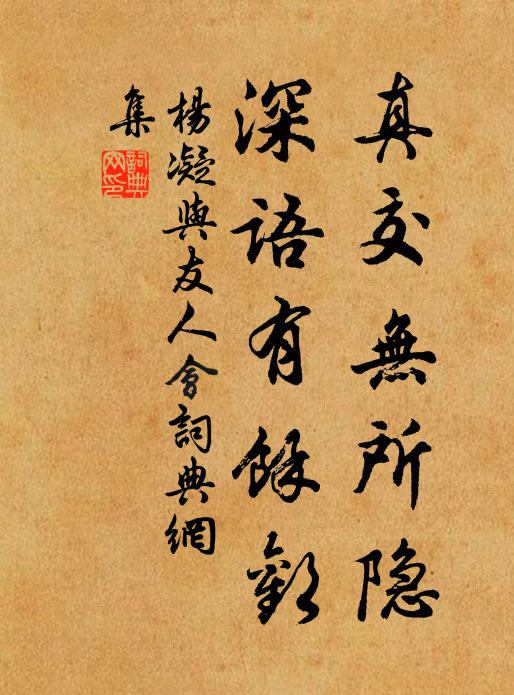 真交無所隐
深語有餘歡
楊凝與友人會詞典網
集
詞典
网印